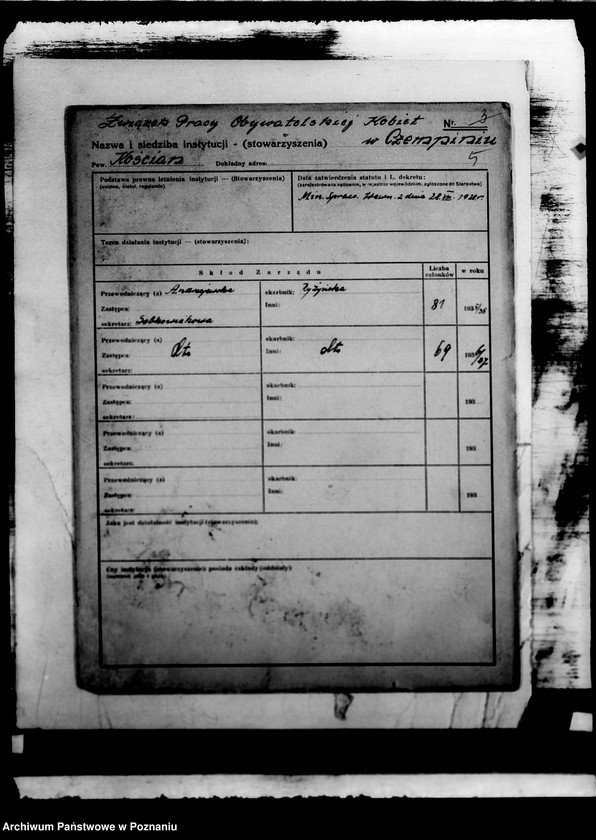 Związek Pracy Obywatelskiej Kobiet Nr. 3
Nazwa i siedziba instytucji - (stowarzyszenia) w Czempiniu
Pow. Kościan Dokładny adres: 5
Podstawa prawna istnienia instytucji — (Stowarzyszenia)
(ustawa, statut, regulamin).
Data zatwierdzenia statutu i L. dekretu:
(zarejestrowania sądownie, w rejestrze wojewódzkim, zgłoszone do Starostwa)
Min. Spraw. Wewn. z dnia 28 1928 r.
Teren działania instytucji — (stowarzyszenia):
Skład Zarządu
Liczba członków
w roku
Przewodniczący (a)
skarbnik: Zyżyńska
Zastępca:
Inni:
81
1935/36
sekretarz: Sobkowiakowa
Przewodniczący (a)
skarbnik:
Zastępca: dto
Inni: dto
69
1936/37
sekretarz:
Przewodniczący (a)
skarbnik:
Zastępca:
Inni:
193
sekretarz:
Przewodniczący (a)
skarbnik:
Zastępca:
Inni:
193
sekretarz:
Przewodniczący (a)
skarbnik:
Zastępca:
Inni:
193
sekretarz:
Jaka jest działalność instytucji (stowarzyszenia):
Czy instytucja (stowarzyszenie) posiada zakłady (oddziały):
Archiwum Państwowe w Poznaniu